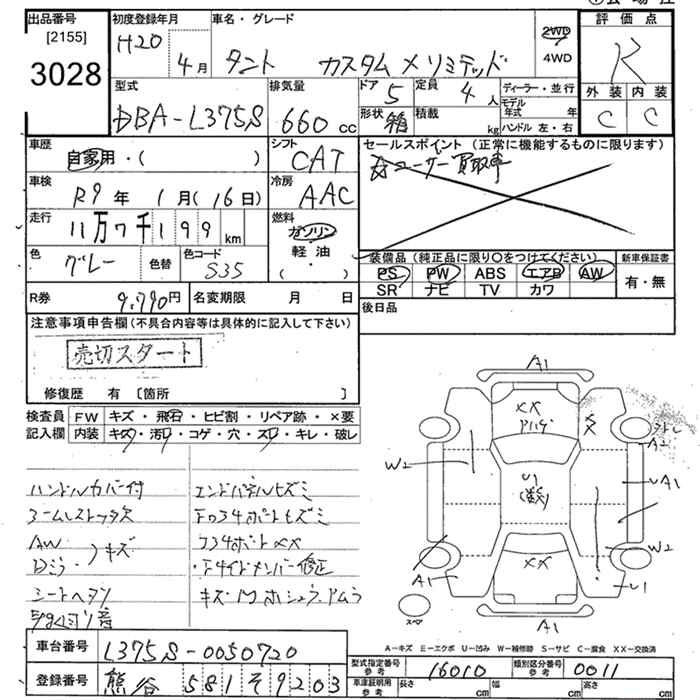 出品番号
[2155]
3028
初度登録年月
H20
4月
車名・グレード
タント カスタム X リミテッド
2WD
4WD
評価点
R
外装 内装
C C
型式
DBA-L375S
排気量
660 cc
ドア 5
形状 箱
定員 4 人
積載 kg
ディーラー・並行
モデル年式 年
ハンドル 左・右
車歴
自家用・( )
シフト
CAT
セールスポイント (正常に機能するものに限ります)
☆ユーザー買取車
車検
R9 年 1月 (16日)
冷房
AAC
走行
11万7千199 km
燃料
ガソリン
軽油
( )
色
グレー
色替
色コード
S35
装備品 (純正品に限り〇をつけてください)
PS PW ABS エアB AW
SR ナビ TV カワ
新車保証書
有・無
R券 9,790円
名変期限 月 日
後日品
注意事項申告欄 (不具合内容等は具体的に記入して下さい)
売切スタート
修復歴 有 〔箇所 〕
検査員 FW キズ・飛石・ヒビ割・リペア跡・×要
記入欄 内装 キズ・汚れ・コゲ・穴・スレ・キレ・破レ
ハンドルカバー付
アームレスト欠
AW
Dミラ・ > キズ
シートヘタリ
エンドパネルヒズミ
F〇34ポートヒズミ
・Fサイドメンバー修正
A1
XX
W2
A2
U1
(数)
A1
W2
XX
A1
U1
スペア
A1
A-キズ E-エクボ U-凹み W-補修跡 S-サビ C-腐食 XX-交換済
車台番号 L375S-0050720
登録番号 熊谷 581 そ 9203
型式指定番号 参考 16010
類別区分番号 参考 0011
車庫証明用 参考 長さ cm 幅 cm 高さ cm